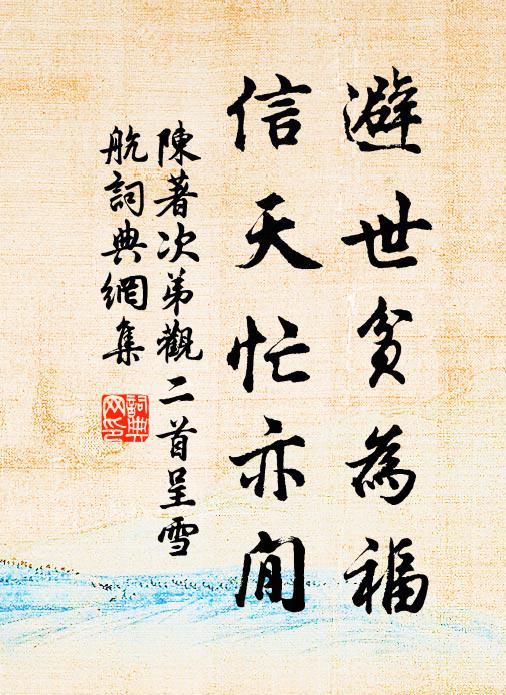 避世貧為福
信天忙亦閒
陳著次弟觀二首呈雪
航詞典網集
詞典網印